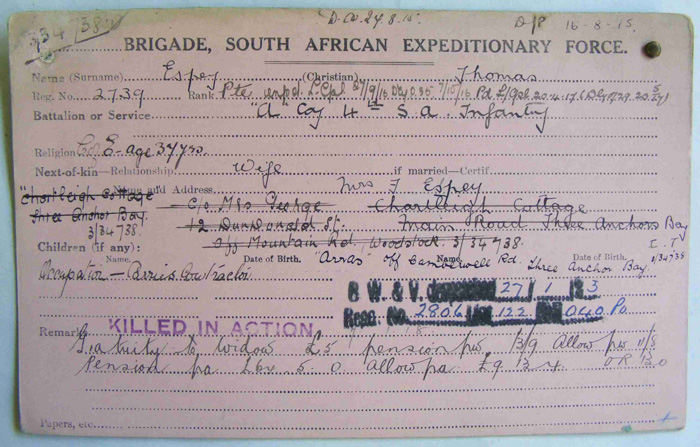 734/738 D.O. 24.8.15. D/P 16-8-15.
BRIGADE, SOUTH AFRICAN EXPEDITIONARY FORCE.
Name (Surname) Espey (Christian) Thomas
Reg. No. 2739 Rank Pte unpd. L/Cpl 27/9/16 Pd L/Cpl 20.4.17
Battalion or Service "A" Coy 4th S.A. Infantry
Religion C of E - age 34 yrs.
Next-of-kin—Relationship Wife if married—Certif.
Name and Address Mrs T Espey
"Chartleigh Cottage c/o Mrs George Chartleigh Cottage
Three Anchor Bay. 12 Dundonald St. Main Road Three Anchors Bay
3/34738. Off Mountain Rd, Woodstock 3/34738. C.T
Children (if any):
Name. Date of Birth. Name. Date of Birth.
"Arras" off Camberwell Rd. Three Anchor Bay. 3/34738
Occupation — Contractor
B. W. & V. 27/1/23
Rose. No. 2806/122 040 Po.
KILLED IN ACTION
Remarks
Gratuity to widow £5 pension pw 13/9 Allow pw 11/8
Pension pa Allow pa £9 13.4
Papers, etc.